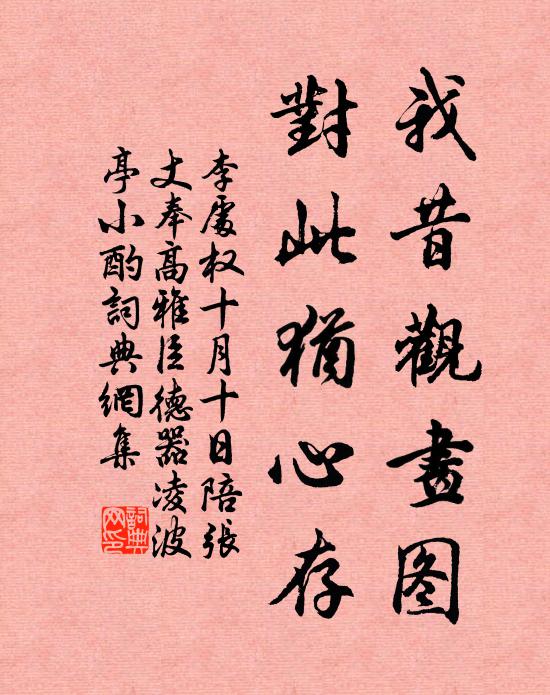 我昔觀畫图
對此猶心存
李處权十月十日陪張
丈奉高雅臣德器凌波
亭小酌詞典網集
詞典網印